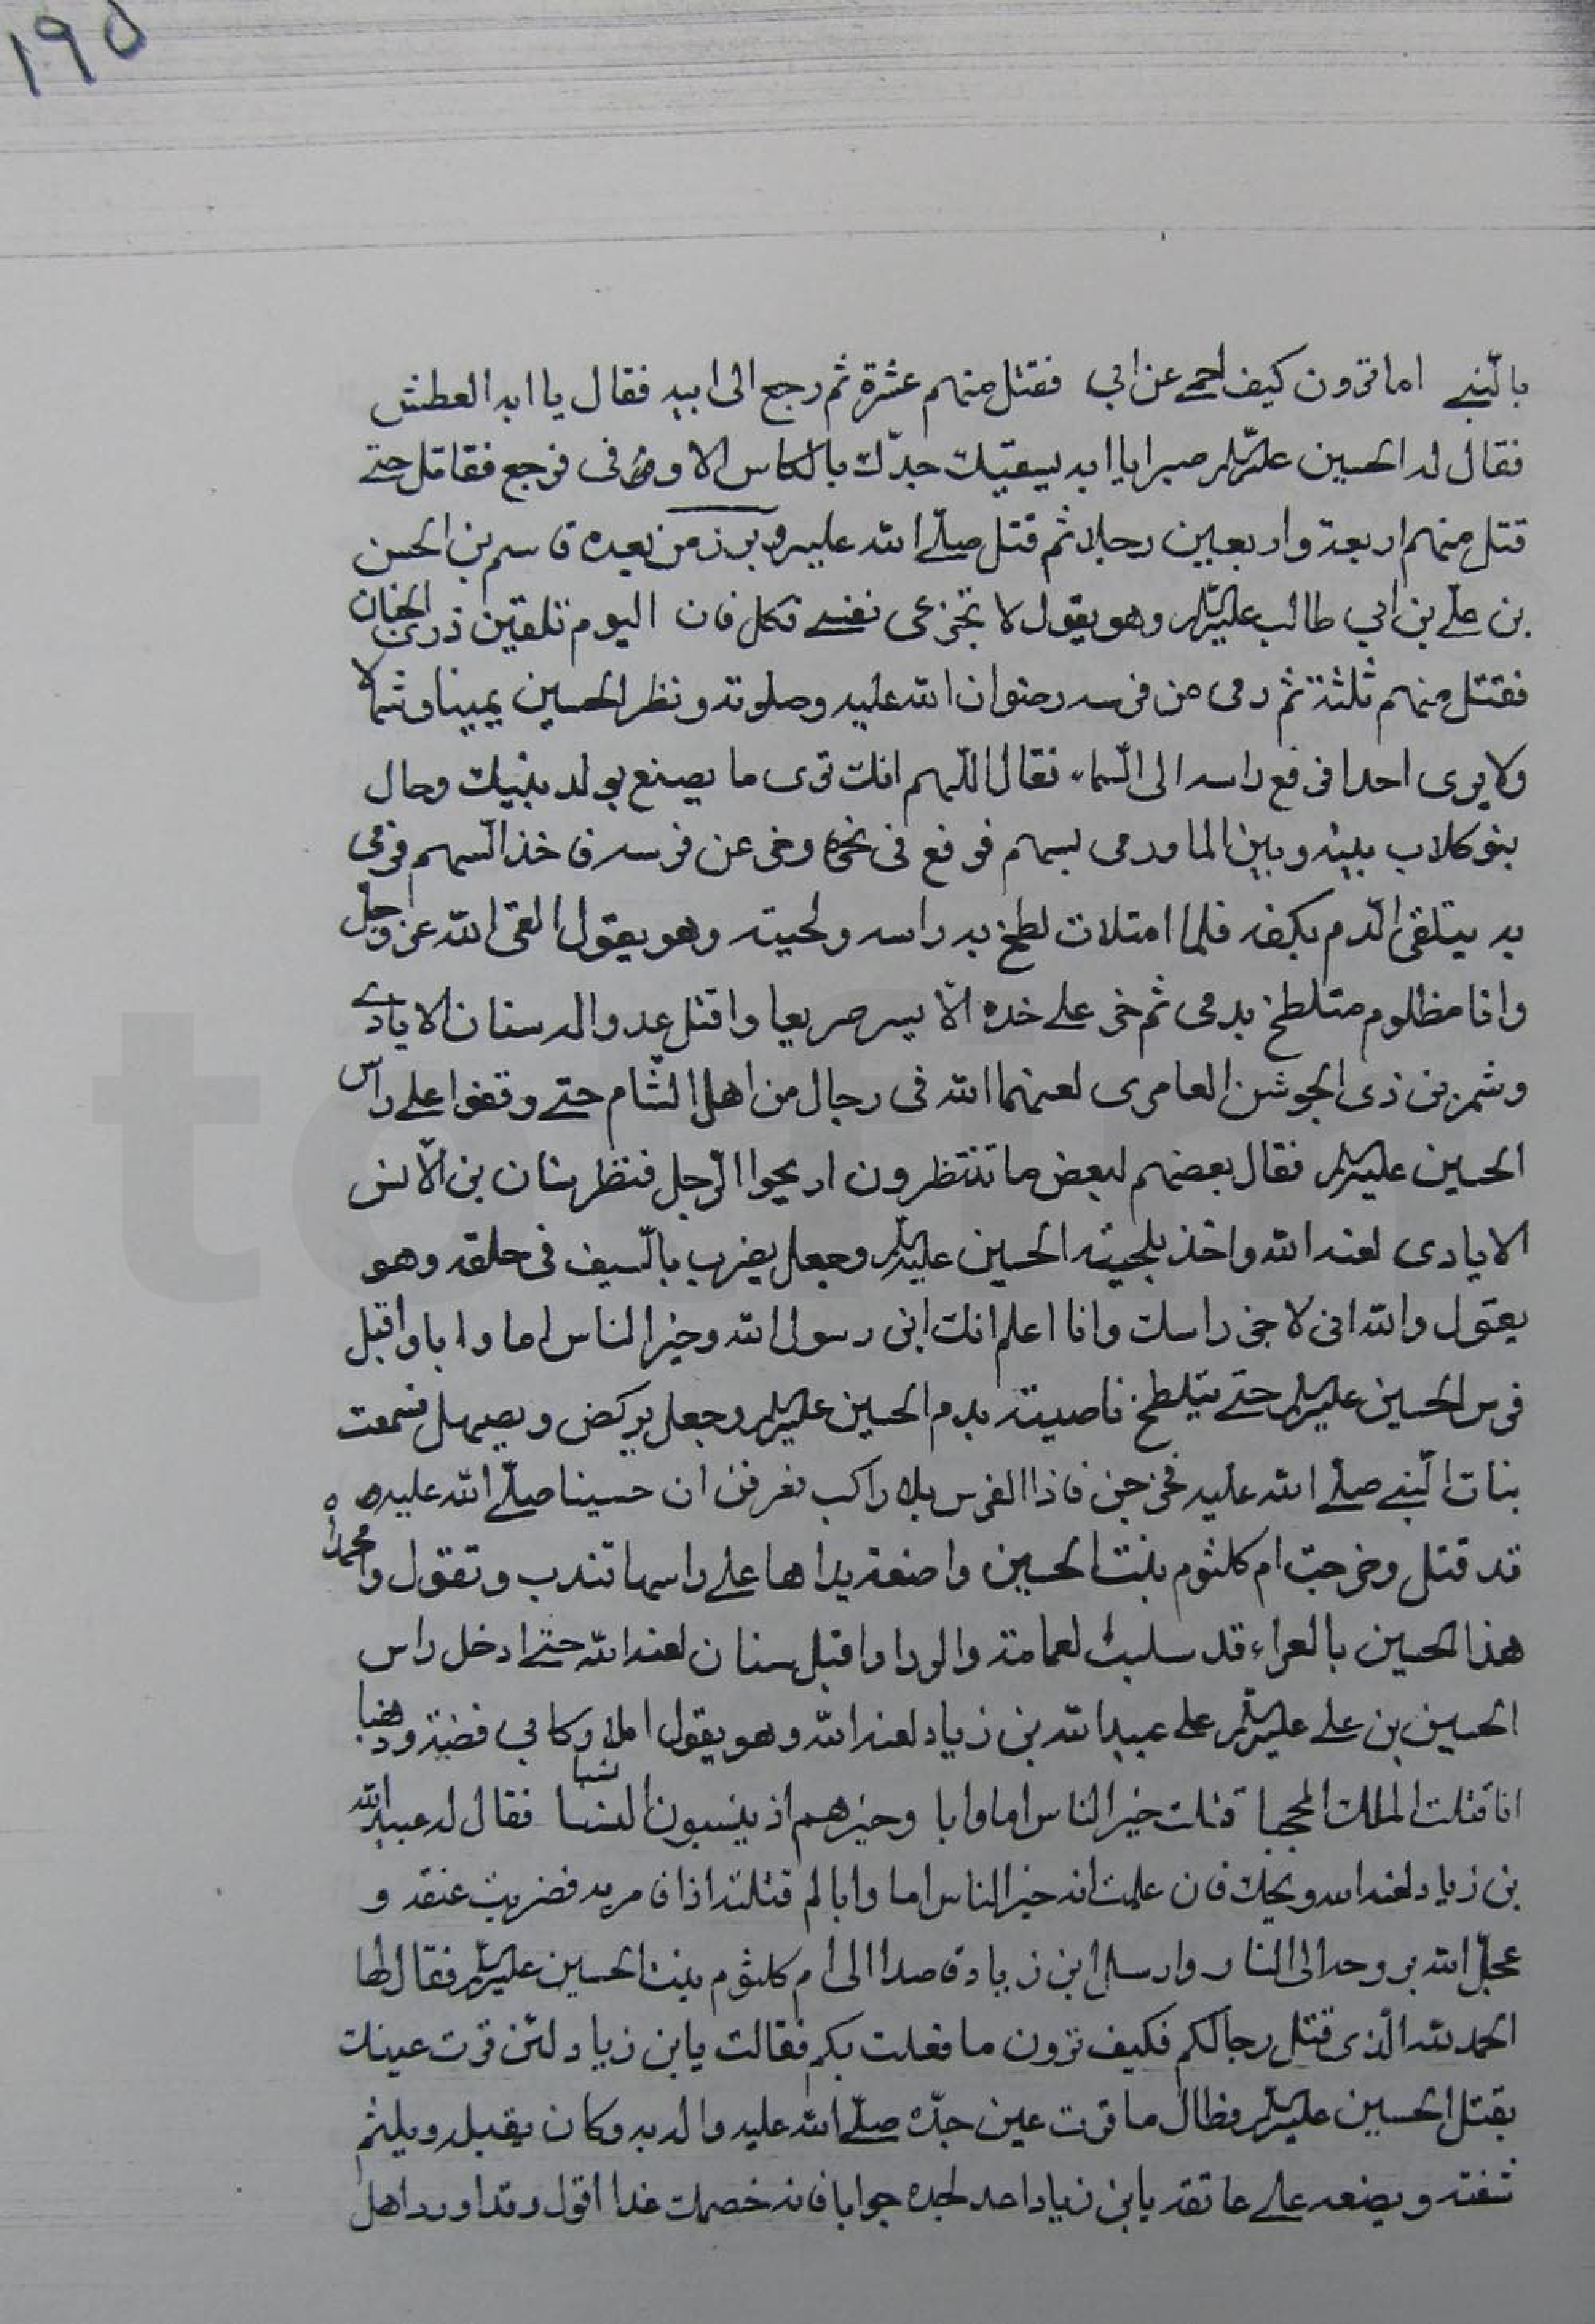 ١٩٥
بالنبي اما ترون كيف احمي عن ابي فقتل منهم عشرة ثم رجع الى ابيه فقال يا ابه العطش
فقال له الحسين عليه السلم صبرا يا ابه يسقيك جدك بالكاس الاوفى فرجع فقاتل حتى
قتل منهم اربعة واربعين رجلا ثم قتل صلى الله عليه وبرز من بعده قاسم بن الحسن
بن علي بن ابي طالب عليه السلم وهو يقول لا تجزعي نفسي فكل فان اليوم تلقين ذرى الجنان
فقتل منهم ثلثة ثم رمى من فرسه رضوان الله عليه وصلوته ونظر الحسين يمينا وشمالا
ولا يرى احدا فرفع راسه الى السماء فقال اللهم انك ترى ما يصنع بولد نبيك وحال
بنو كلاب بينه وبين الماء ورمي بسهم فوقع في نحره وخر عن فرسه فاخذ السهم فرمى
به يتلقى الدم بكفه فلما امتلات لطخ به راسه ولحيته وهو يقول القى الله عز وجل
وانا مظلوم متلطخ بدمي ثم خر على خده الايسر صريعا واقبل عدو الله سنان الايادي
وشمر بن ذي الجوشن العامري لعنهما الله في رجال من اهل الشام حتى وقفوا على راس
الحسين عليه السلم فقال بعضهم لبعض ما تنتظرون اريحوا الرجل فنظر سنان بن الانس
الايادي لعنه الله واخذ بلحية الحسين عليه السلم وجعل يضرب بالسيف في حلقه وهو
يقول والله اني لاجز راسك وانا اعلم انك ابن رسول الله وخير الناس اما وابا واقبل
فرس الحسين عليه السلم حتى يتلطخ ناصيته بدم الحسين عليه السلم وجعل يركض ويصهل فسمعت
بنات النبي صلى الله عليه فخرجن فاذا الفرس بلا راكب فعرفن ان حسينا صلى الله عليه
قد قتل وخرجت ام كلثوم بنت الحسين واضعة يداها على راسها تندب وتقول وا محمداه
هذا الحسين بالعراء قد سلبت لعمامة والردا واقبل سنان لعنه الله حتى ادخل راس
الحسين بن علي عليه السلم على عبيد الله بن زياد لعنه الله وهو يقول املا ركابي فضة وذهبا
انا قتلت الملك المحجبا قتلت خير الناس اما وابا وخيرهم اذ ينسبون النسبا فقال له عبيد الله
بن زياد لعنه الله ويحك فان علمت انه خير الناس اما وابا لم قتلته اذا فامر به فضربت عنقه و
عجل الله بروحه الى النار وارسل ابن زياد قاصدا الى ام كلثوم بنت الحسين عليه السلم فقال لها
الحمد لله الذي قتل رجالكم فكيف ترون ما فعلت بكم فقالت يابن زياد لئن قرت عينك
بقتل الحسين عليه السلم فطال ما قرت عين جده صلى الله عليه واله به وكان يقبله ويلثم
شفته ويضعه على عاتقه يابن زياد اعد لجده جوابا فانه خصمك غدا اقول وقد اورد اهل